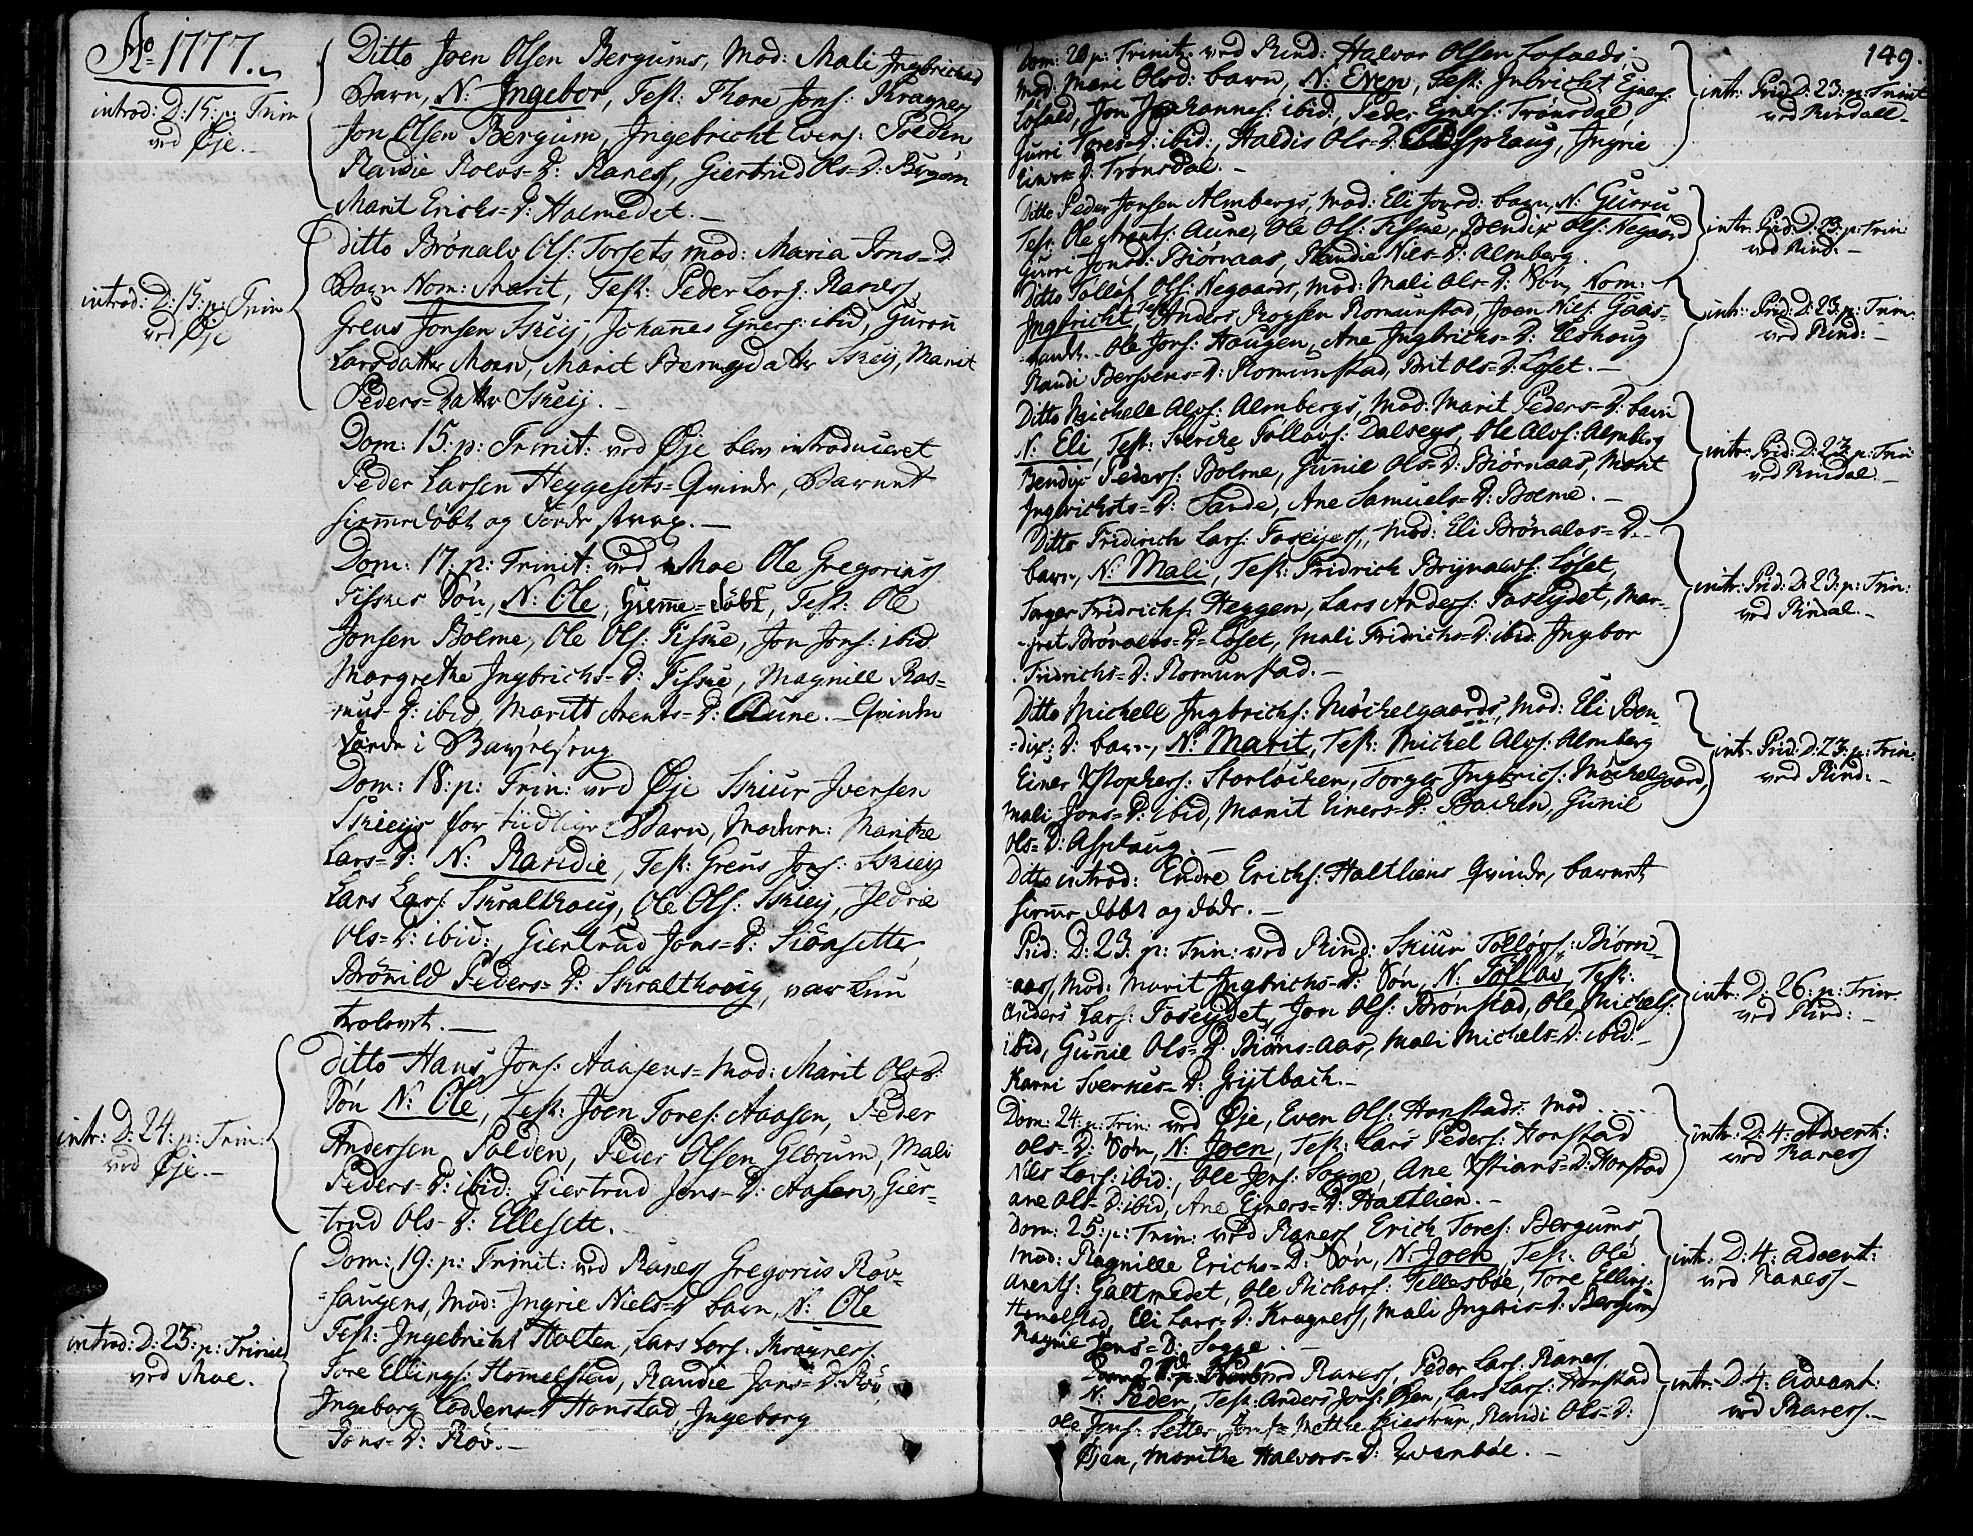 Ao 1777.
Ditto Joen Olsen Bergums, Mod: Mali Ingbrichts d
introd: D: 15: p: Trin
ved Øje.
Barn, N: Ingebor, Test: Thore Jons: Kragness
Jon Olsen Bergum, Ingebricht Evens: Polden
Randie Roevs=D: Raness, Giertrud Ols=D: Bergom
Marit Erichs=D: Halmedet.
introd: D: 15: p: Trin
ved Øje
ditto Brönalv Ols: Torsets, mod: Maria Jons=D
Barn Nom: Marit, Test: Peder Lars: Raness
Greus Jonsen Skeij, Johannes Ejners: ibid, Gurru
Larsdatter Moen, Marit Berngdatter Skeij, Marit
Peders=Datter Skeij.
Dom: 15: p: Trinit: ved Øje blev introduceret
Peder Larsen Heggesets=Qvinde, Barnet
hiemmedöbt og döde strax.
Dom: 17: p: Trinit: ved Moe Ole Gregoriuss
Fiskes Sön, N: Ole, hiemme=döbt, Test: Ole
Jonsen Bolme, Ole Ols: Fiske, Jon Jons: ibid
Margrethe Ingbrichs=D: Fiske, Magnill Ras=
mus=D: ibid, Maritt Arents=D: Aune. Qvinden
döde i Barselseng
Dom: 18: p: Trin: ved Øje Skiur Iversen
Skeijs for tiidlige Barn, Moderen: Marithe
Lars=D: N: Randie, Test: Greus Jons: Skeij
Lars Lars: Skralthoug, Ole Ols: Skeij, Ildrie
Ols=D: ibid:, Giertrud Jons=D: Siönsetter
Brönild Peders=D: Skralthoug, var kun
trolovet.
intr: D: 24: p: Trin:
ved Øje.
Ditto Hans Jons: Aasens=Mod: Marit Ols d:
Sön N: Ole, Test: Joen Tores: Aasen, Peder
Andersen Polden, Peder Olsen Glærum, Mali
Peders=D: ibid: Giertrud Jons=D: Aasen, Gier=
=trud Ols=D: Ellesett.
introd: D: 23: p: Trinit
ved Moe.
Dom: 19: p: Trinit: ved Raness Gregorius Röv=
=haugens, Mod: Ingrie Niels=D barn, N: Ole
Test: Ingebricht Holten, Lars Lars: Kragness
Tore Ellings: Hommelstad, Randie Jons=D: Röv,
Ingeborg Loddens=D Honstad, Ingeborg
Jons=D: Röv.
149.
Dom: 20 p: Trinit: ved Rind: Halvor Olsen Lofalds;
Mod: Mari Olsd: barn, N: Even, Test: Inbricht Ejners:
Löfald, Jon Johannes: ibid., Peder Ejners: Trönsdal,
Gurri Tores=D: ibid:, Haldis Ols=D: Asphaug, Ingrie
Einers=D: Trönsdal.
intr: Prid: D: 23: p: Trinit
ved Rindall
Ditto Peder Jonsen Almbergs, Mod: Eli Joursd: barn, N: Gurru,
Test: Ole Arents: Aune, Ole Ols: Fiske, Bendix Ols: Negaard
Gurri Jonsd: Biörnaas, Randie Niels=D: Almberg.
intr: Prid: D: 23: p: Trin:
ved Rind:
Ditto Tollöf Ols: Negaards, Mod: Mali Ols=D: Sön, Nom:
Ingbricht, Test: Anders Roesen Romunstad, Joen Niels: Gaas=
=vandt. Ole Jons: Haugen, Ane Ingbrichs=D: Elshoug
Randi Bersvens=D: Romunstad, Brit Ols=D: Löset.
intr: Prid: D: 23: p: Trin:
ved Rind:
Ditto Michell Alvs: Almbergs, Mod: Marit Peders=D: barn
N: Eli, Test: Sverche Tollövs: Dalsegs, Ole Alvs: Almberg
Bendix Peders: Bolme, Gunnil Ols=D: Biörnaas, Marit
Ingbrichsts=D: Sande, Ane Samuels=D: Bolme.
intr: Prid: D: 23: p: Trin
ved Rindal
Ditto Fridrich Lars: Foseijess, Mod: Eli Brönalvs=D.
barn, N: Mali, Test: Fridrich Brijnalvs: Löset,
Tager Fridrichs: Heggem, Lars Anders: Foslydet, Mar=
=gret Brönalvs=D=Löset, Mali Fridrichs=D: ibid: Ingebor
Fridrichs=D: Romunstad.
intr: Prid: D: 23: p: Trin:
ved Rindal.
Ditto Michell Ingbrichs: Möchelgaards, Mod: Eli Ben=
=dix: D: barn, N: Marit, Test: Michel Alvs: Almberg
Einer Xstophers: Storlöcken, Torger Ingbrics: Möckelgaard,
Mali Jons=D: ibid, Marit Einers=D: Bachen, Gunil
Ols=D: Asphaug.
intr: Prid: D: 23: p: Trin:
ved Rind:
Ditto introd: Endre Erichs: Haltliens Qvinde, barnet
hiemme döbt og döde.
Prid: D: 23: p: Trin: ved Rind: Skiur Tollövs: Biörn=
=aas, Mod: Marit Ingbrichs=D: Sön, N: Tollöv, Test:
Anders Lars: Foseijdet, Jon Ols: Brönstad, Ole Michels:
ibid, Gunnil Ols=D: Biörns=aas, Mali Michels=D: ibid.
Karri Sverkes=D: Grijtbach.
intr: D: 26: p: Trin:
ved Rind:
Dom: 24: p: Trin: ved Øje, Even Ols: Honstads Mod
Ols=D: Sön, N: Joen, Test: Lars Peders: Honstad
Nils Lars: ibid:, Ole Jens: Sogge, Ane Xstians=D: Honstad
ane Ols=D: ibid, Ane Ejners=D: Haltlien.
intr: D: 4: Advent:
ved Raness
Dom: 25: p: Trin: ved Raness Erich Tores: Bergums
Mod: Ragnille Erichs=D: Sön, N: Joen, Test: Ole
Arents: Galtmedet, Ole Richors: Tillesböe, Tore Ellings:
Homelstad, Eli Lars=D: Kragness, Mali Ingbris=D: Bergum
Ragnil Jens=D: Sogge.
intr: D: 4: Advent:
ved Raness
ved Raness, Peder Lars: Raness
N: Peder, Test: Anders Jons: Øien, Lars Lars: Honstad
Ole Jons: Setter, Jomf: Methe Kiestrup, Randi Ols=D:
Øjen, Marithe Halvors=D: Evenböe.
intr: D: 4: Advent:
ved Raness.